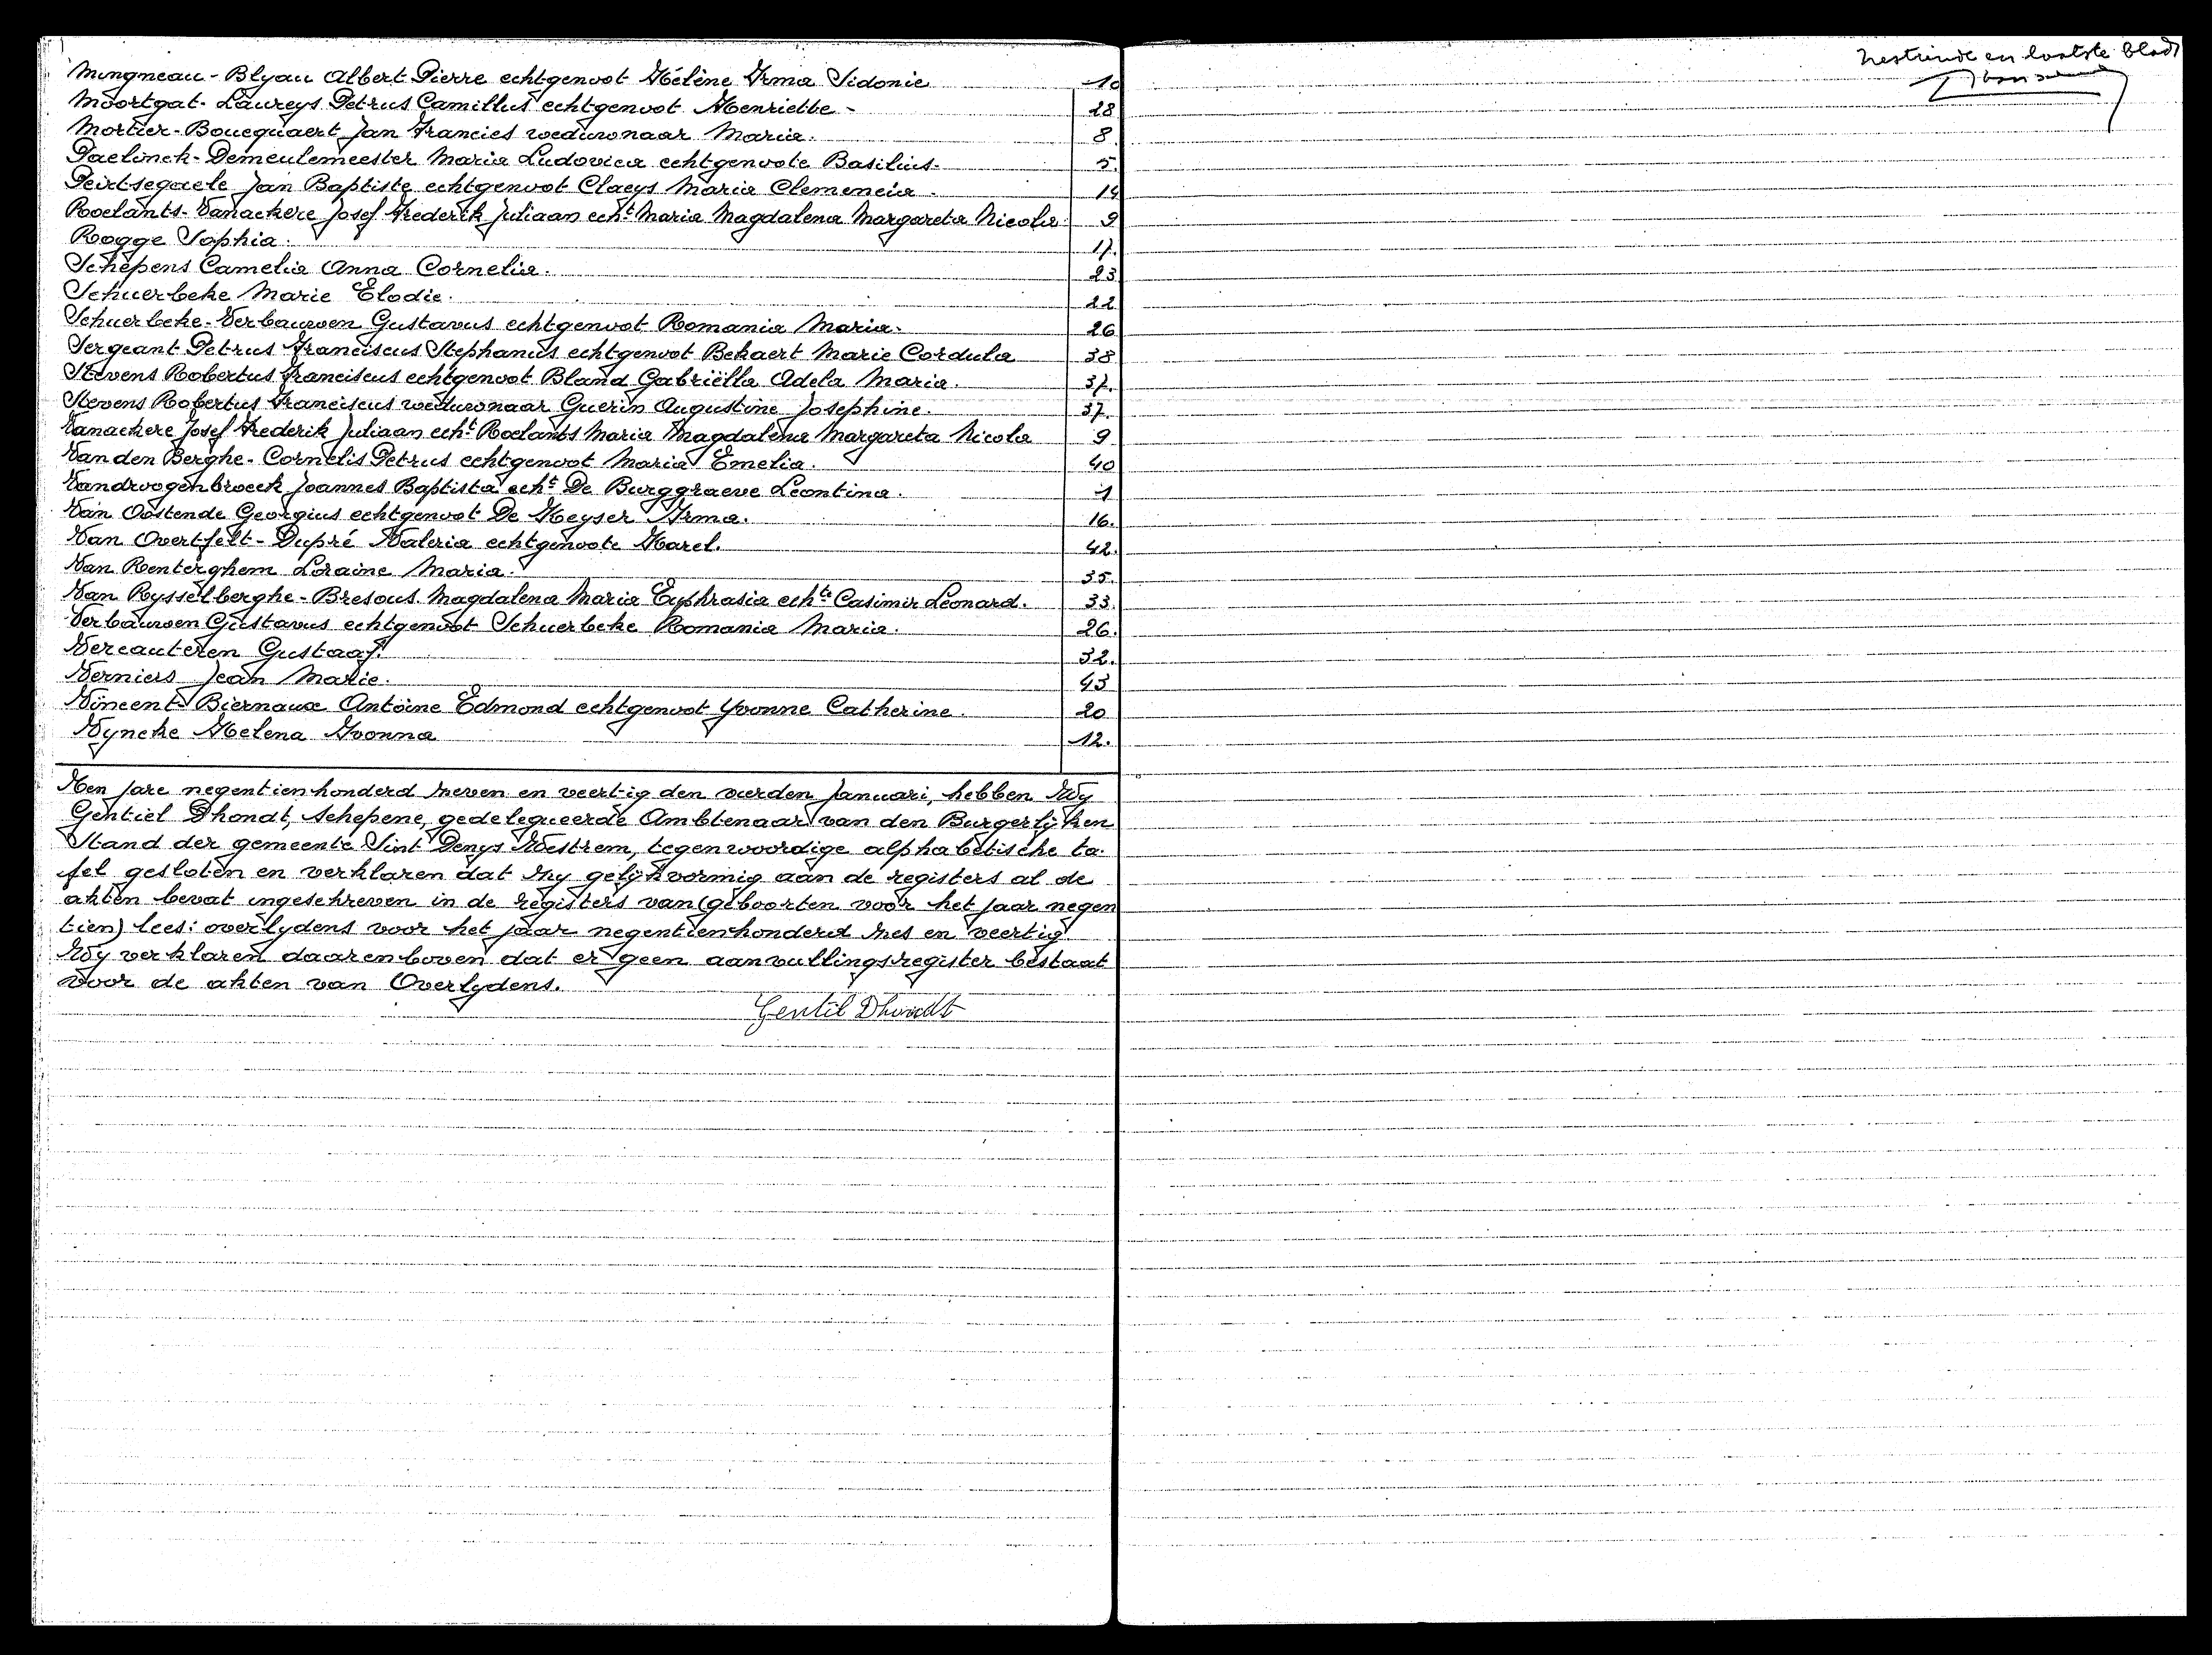 Mingneau - Blyau Albert Pierre echtgenoot Hélène Irma Sidonie 10
Moortgat - Laureys Petrus Camillus echtgenoot Henriette - 28
Mortier - Boucquaert Jan Francies weduwnaar Maria. 8.
Paelinck - Demeulemeester Maria Ludovica echtgenoote Basilius. 5.
Peirtsegaele Jan Baptiste echtgenoot Claeys Maria Clemencia. 14
Roelants - Vanackere Josef Frederik Juliaan echt Maria Magdalena Margareta Nicola. 9
Rogge Sophia. 17.
Schepens Camelia Anna Cornelia. 23
Schuerbeke Marie Elodie. 22
Schuerbeke - Verbauwen Gustavus echtgenoot Romania Maria. 26
Sergeant Petrus Franciscus Stephanus echtgenoot Bekaert Marie Cordula 38
Stevens Robertus Franciscus echtgenoot Bland Gabriëlla Adela Maria. 37.
Stevens Robertus Franciscus weduwnaar Guerin Augustine Josephine. 37.
Vanackere Josef Frederik Juliaan echt Roelants Maria Magdalena Margareta Nicola 9
Van den Berghe - Cornelis Petrus echtgenoot Maria Emelia. 40
Vandroogenbroeck Joannes Baptista echt De Burggraeve Leontina. 1
Van Oostende Georgius echtgenoot De Keyser Irma. 16.
Van Overtfelt - Dupré Valeria echtgenoote Karel. 42.
Van Renterghem Loraine Maria. 35.
Van Rysselberghe - Bresous Magdalena Maria Euphrasia echte Casimir Léonard. 33.
Verbauwen Gustavus echtgenoot Schuerbeke Romania Maria. 26.
Vercauteren Gustaaf. 32.
Verniers Jean Marie. 43
Vincent - Biernaux Antoine Edmond echtgenoot Yvonne Catherine. 20
Vyncke Helena Ivonna 12.
Ten jare negentienhonderd zeven en veertig den vierden Januari, hebben Wy
Gentiel Dhondt, Schepene, gedelegueerde Ambtenaar van den Burgerlijken
Stand der gemeente Sint Denys Westrem, tegenwoordige alphabetische ta-
fel gesloten en verklaren dat zy gelijkvormig aan de registers al de
akten bevat ingeschreven in de registers van (geboorten voor het jaar negen
tien) lees: overlydens voor het jaar negentienhonderd zes en veertig
Wy verklaren daarenboven dat er geen aanvullingsregister bestaat
voor de akten van Overlydens.
Gentil Dhondt
zestiende en laatste blad